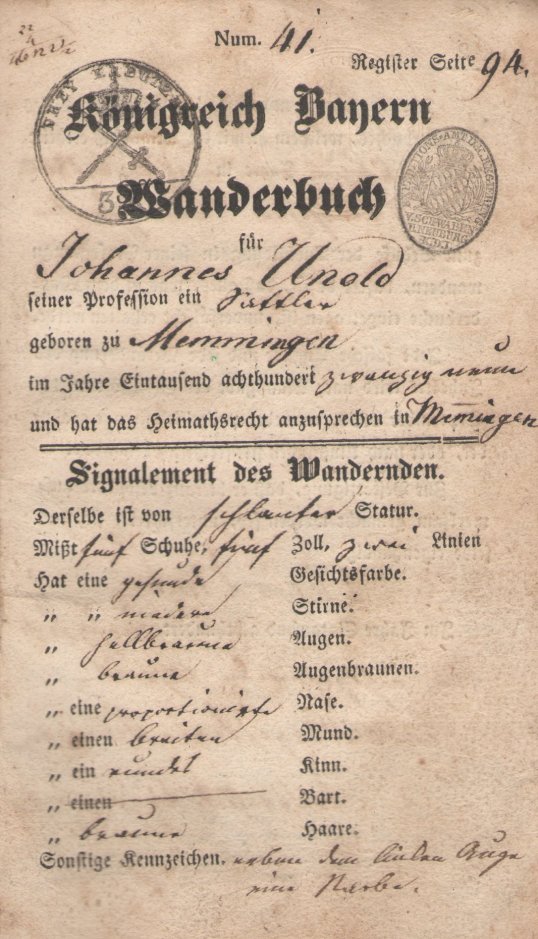 Num. 41.
Register Seite 94.
DREY KREUZER
Königreich Bayern
3
Wanderbuch
für
Johannes Unold
seiner Profession ein Sattler
geboren zu Memmingen
im Jahre Eintausend achthundert zwanzig neun
und hat das Heimathsrecht anznsprechen in Mem̅ingen
Signalement des Wandernden.
Derselbe ist von schlanker Statur.
Mißt fünf Schuhe, fünf Zoll, zwei Linien
Hat eine gesunde Gesichtsfarbe.
„ „ niedere Stirne.
„ hellbraune Augen.
„ braune Augenbraunen.
„ eine proportionirte Nase.
„ einen breiten Mund.
„ ein rundes Kinn.
„ einen Bart.
„ braune Haare.
Sonstige Kennzeichen. neben dem linken Auge
eine Narbe.